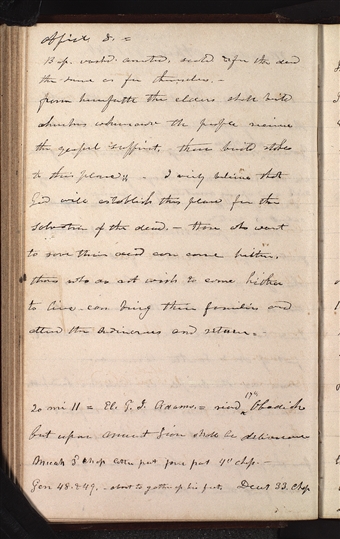 Bap. washed anointed, sealed & for the dead
the same as for themselves. —
from henceforth the elders shall build
churches wheresoever the people receive
the gospel sufficient, then build stakes
to this place". — I verily believe that
God will establish this place for the
salvation of the dead. — those who want
to save their dead can come hither,
those who do not wish to come hither
to live can bring their families and
attend the ordinances and return. —
20 mi 11 = El. G. J. Adams. = read 17th Obadiah
but upon mount Zion shall be deliverance
4th chap. —
Gen 48. & 49. — about to gather up his feet, Deut 33. Chap